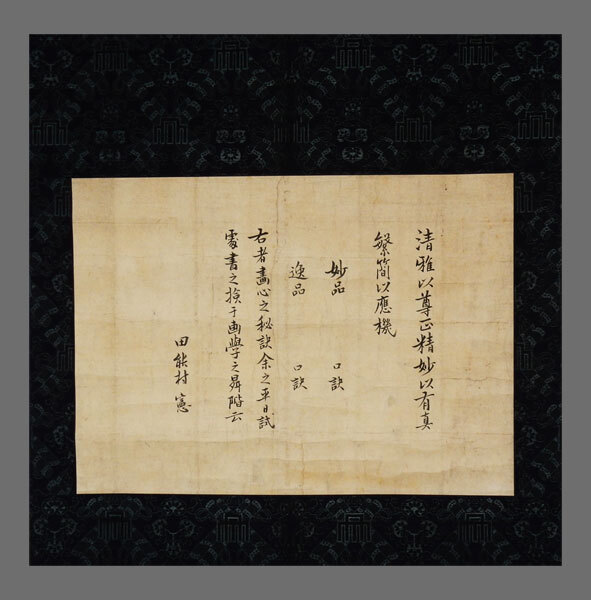 清雅以尊正精妙以有真
繁簡以應機
妙品 口訣
逸品 口訣
右者畫心之秘訣余之平日試
書之 于画學之昇階云
田能村 憲